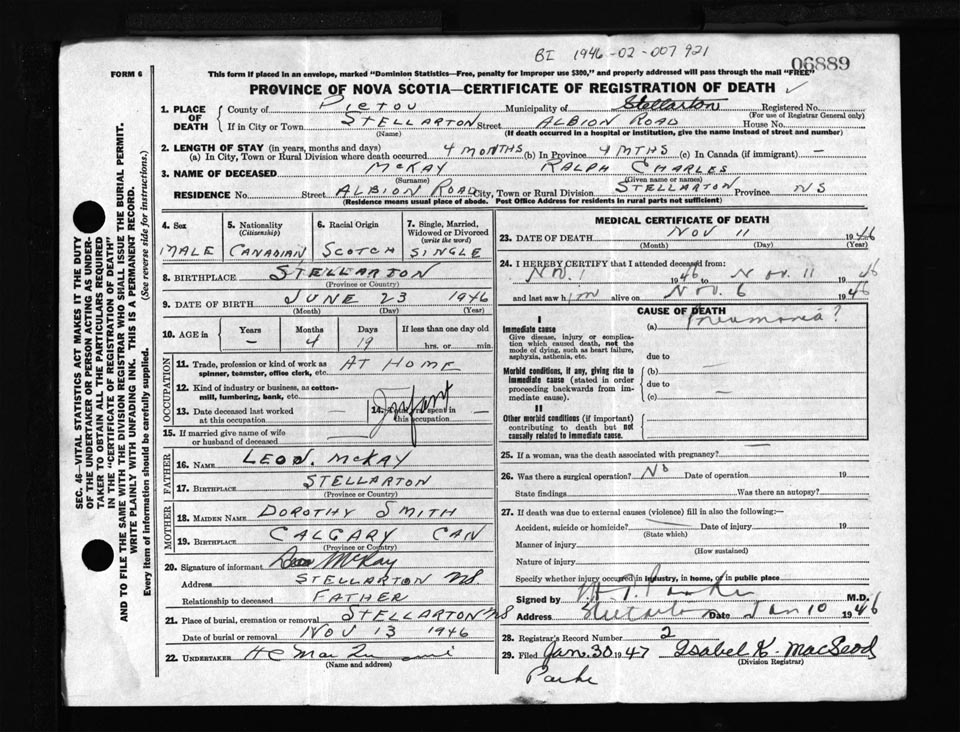 BI 1946-02-007921
06889
FORM 6
This form if placed in an envelope, marked "Dominion Statistics—Free, penalty for improper use $300," and properly addressed will pass through the mail "FREE"
PROVINCE OF NOVA SCOTIA—CERTIFICATE OF REGISTRATION OF DEATH ✓
1. PLACE OF DEATH County of PICTOU Municipality of Stellarton Registered No.
(For use of Registrar General only)
If in City or Town STELLARTON Street ALBION ROAD House No.
(Name) (If death occurred in a hospital or institution, give the name instead of street and number)
2. LENGTH OF STAY (in years, months and days)
(a) In City, Town or Rural Division where death occurred 4 MONTHS (b) In Province 4 MTHS (c) In Canada (if immigrant) —
3. NAME OF DECEASED MCKAY RALPH CHARLES
(Surname) (Given name or names)
RESIDENCE No. Street ALBION ROAD City, Town or Rural Division STELLARTON Province NS
(Residence means usual place of abode. Post Office Address for residents in rural parts not sufficient)
4. Sex 5. Nationality (Citizenship) 6. Racial Origin 7. Single, Married, Widowed or Divorced (write the word)
MALE CANADIAN SCOTCH SINGLE
8. BIRTHPLACE STELLARTON
(Province or Country)
9. DATE OF BIRTH JUNE 23 1946
(Month) (Day) (Year)
10. AGE in Years Months Days If less than one day old
— 4 19 hrs. or min.
OCCUPATION
11. Trade, profession or kind of work as spinner, teamster, office clerk, etc. AT HOME
12. Kind of industry or business, as cotton-mill, lumbering, bank, etc.
Infant
13. Date deceased last worked at this occupation — 14. spent in this occupation —
15. If married give name of wife or husband of deceased —
FATHER
16. NAME LEON. MCKAY
17. BIRTHPLACE STELLARTON
(Province or Country)
MOTHER
18. MAIDEN NAME DOROTHY SMITH
19. BIRTHPLACE CALGARY CAN
(Province or Country)
20. Signature of informant McKay
Address STELLARTON NS.
Relationship to deceased FATHER
21. Place of burial, cremation or removal STELLARTON NS
Date of burial or removal NOV 13 1946
22. UNDERTAKER
(Name and address)
MEDICAL CERTIFICATE OF DEATH
23. DATE OF DEATH NOV 11 1946
(Month) (Day) (Year)
24. I HEREBY CERTIFY that I attended deceased from:
Nov. 1 1946 to Nov. 11 1946
and last saw him alive on Nov. 6 1946
CAUSE OF DEATH
I
Immediate cause (a) Pneumonia?
Give disease, injury or complication which caused death, not the mode of dying, such as heart failure, asphyxia, asthenia, etc.
due to
Morbid conditions, if any, giving rise to immediate cause (stated in order proceeding backwards from immediate cause).
(b) —
due to —
(c) —
II
Other morbid conditions (if important) contributing to death but not causally related to immediate cause.
25. If a woman, was the death associated with pregnancy? —
26. Was there a surgical operation? No Date of operation 19
State findings Was there an autopsy?
27. If death was due to external causes (violence) fill in also the following:—
Accident, suicide or homicide? — Date of injury 19
(State which)
Manner of injury
(How sustained)
Nature of injury
Specify whether injury occurred in industry, in home, or in public place
Signed by Parker M.D.
Address Stellarton Date Jan 10 1946
28. Registrar's Record Number 2
29. Filed Jan. 30 1947 Isabel K. MacLeod
(Division Registrar)
SEC. 46—VITAL STATISTICS ACT MAKES IT THE DUTY
OF THE UNDERTAKER OR PERSON ACTING AS UNDER-
TAKER TO OBTAIN ALL THE PARTICULARS REQUIRED
IN THE "CERTIFICATE OF REGISTRATION OF DEATH"
AND TO FILE THE SAME WITH THE DIVISION REGISTRAR WHO SHALL ISSUE THE BURIAL PERMIT.
WRITE PLAINLY WITH UNFADING INK. THIS IS A PERMANENT RECORD.
Every item of information should be carefully supplied. (See reverse side for instructions.)